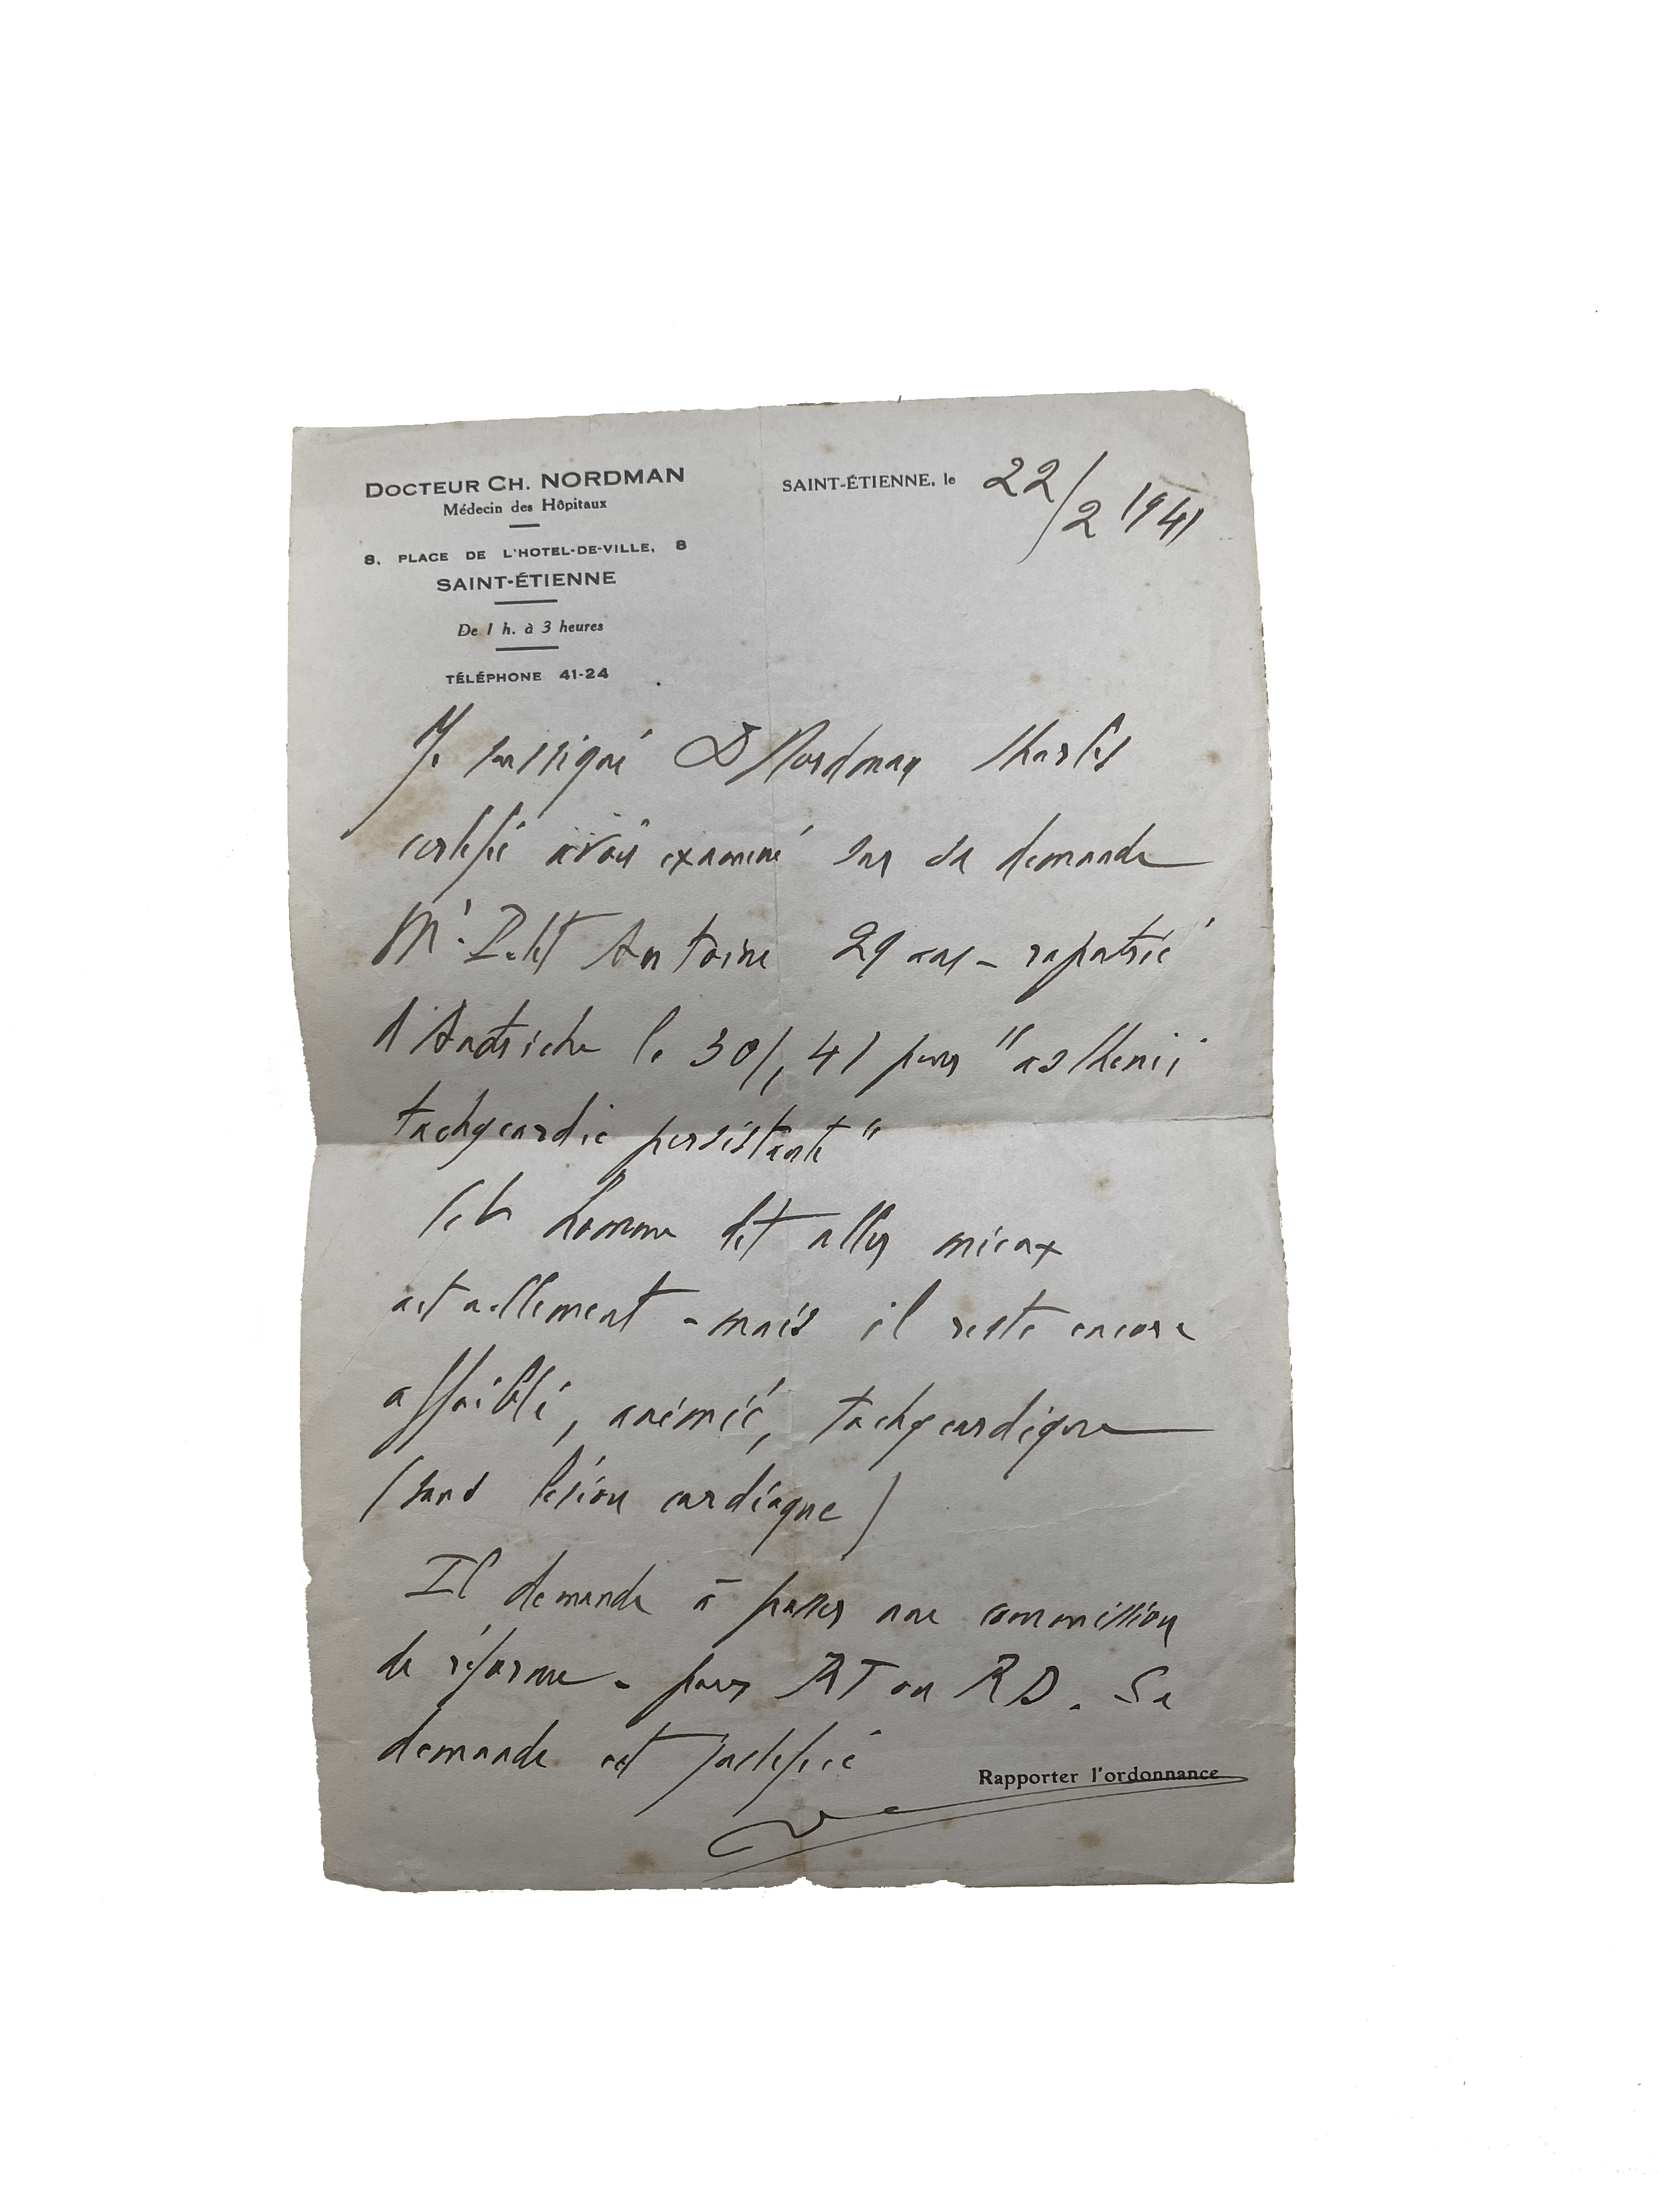 DOCTEUR CH. NORDMAN
Médecin des Hôpitaux
8, PLACE DE L'HOTEL-DE-VILLE, 8
SAINT-ÉTIENNE
De 1 h. à 3 heures
TÉLÉPHONE 41-24
SAINT-ÉTIENNE, le 22/2 1941
Je soussigné Dr Nordman Charles
certifie avoir examiné sur sa demande
Mr. Petit Antoine 29 ans - rapatrié
d'Autriche le 30/1 41 pour "asthénie
tachycardie persistante"
Cet homme dit aller mieux
actuellement - mais il reste encore
affaibli, anémié, tachycardique
(sans lésion cardiaque)
Il demande à passer une commission
de réforme - pour RT ou RD. Sa
demande est justifiée
Rapporter l'ordonnance